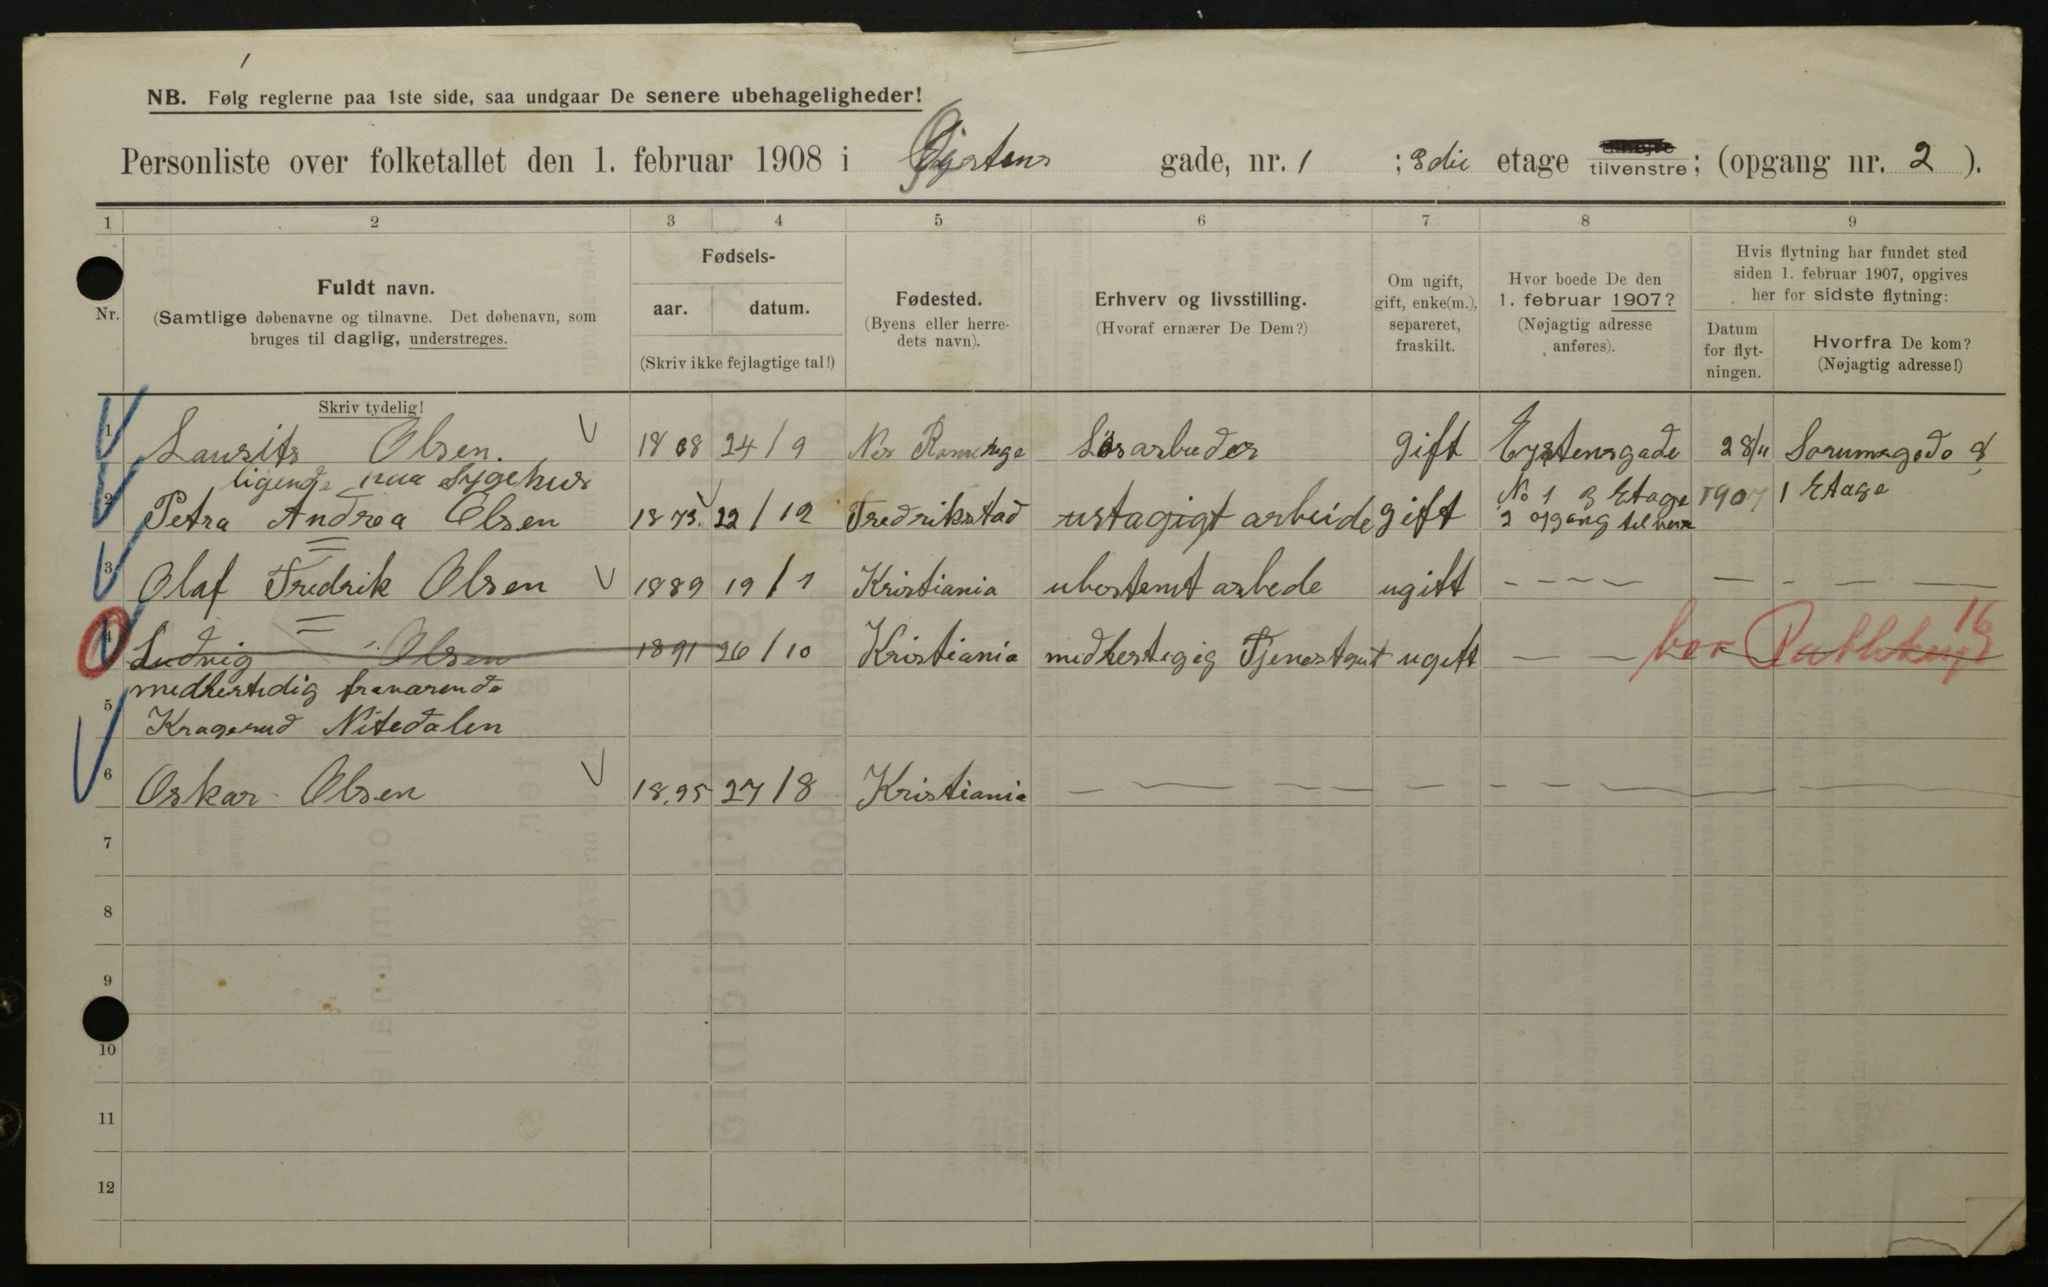 NB. Følg reglerne paa 1ste side, saa undgaar De senere ubehageligheder!
Personliste over folketallet den 1. februar 1908 i Øjstens gade, nr. 1 ; 3die etage tilvenstre; (opgang nr. 2 ).
1 2 3 4 5 6 7 8 9
Nr.
Fuldt navn.
(Samtlige døbenavne og tilnavne. Det døbenavn, som
bruges til daglig, understreges.
Skriv tydelig!
Fødsels-
aar. datum.
(Skriv ikke fejlagtige tal!)
Fødested.
(Byens eller herre-
dets navn).
Erhverv og livsstilling.
(Hvoraf ernærer De Dem?)
Om ugift,
gift, enke(m.),
separeret,
fraskilt.
Hvor boede De den
1. februar 1907?
(Nøjagtig adresse
anføres).
Hvis flytning har fundet sted
siden 1. februar 1907, opgives
her for sidste flytning:
Datum
for flyt-
ningen.
Hvorfra De kom?
(Nøjagtig adresse!)
1 Laurits Olsen. 1868 24/9 Nes Gift Eystensgade 28/11 Sorumsgado 8
ligende paa Sygehus
2 Petra Andrea Olsen 1873 22/12 Fredrikstad ustagigt arbeide gift No 1 3 Etage 1907 1 Etage
2 opgang til
3 Olaf Fredrik Olsen 1889 19/1 Kristiania ubestemt arbede ugift
4 Ludvig Olsen 1891 26/10 Kristiania ugift bor 16
midlertidig fraværende
5 Kragerud Nitedalen
6 Oskar Olsen 1895 27/8 Kristiania
7
8
9
10
11
12